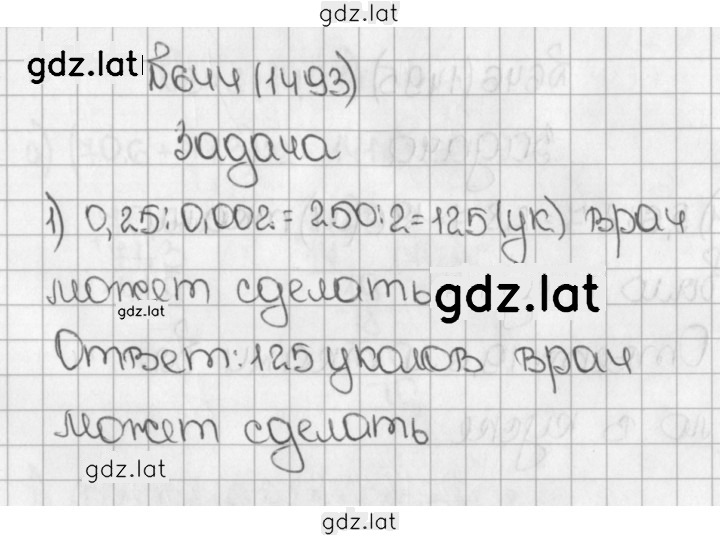 gdz.lat
gdz.lat №644 (1493)
Задача
1) 0,25:0,002=250:2=125(ук) врач
может сделать gdz.lat
gdz.lat
Ответ:125 уколов врач
может сделать
gdz.lat
gdz.lat